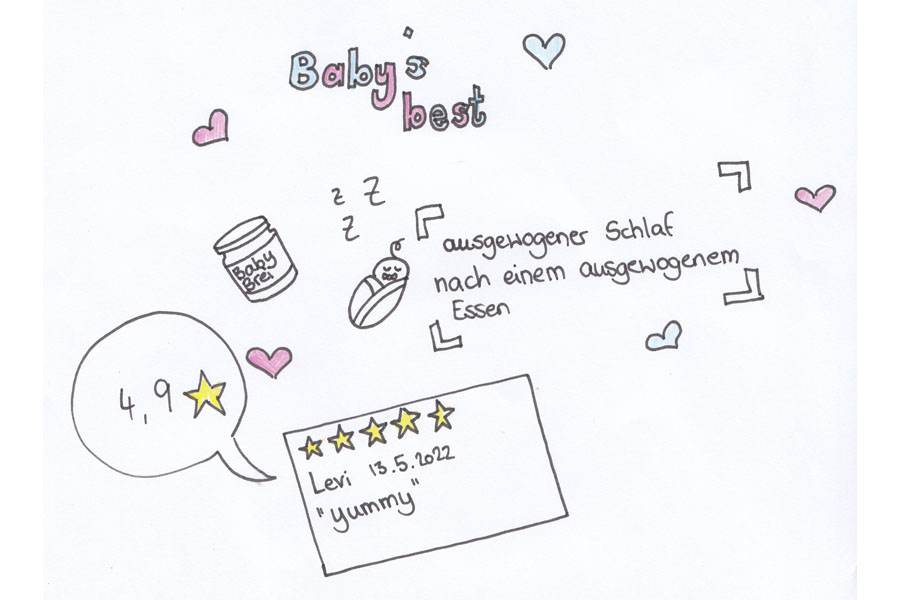 Baby's
best
z Z
Z
Baby
Brei
ausgewogener Schlaf
nach einem ausgewogenem
Essen
4,9
Levi 13.5.2022
"yummy"